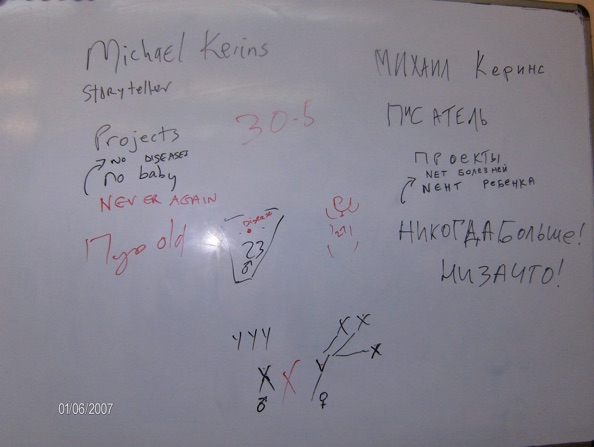 Michael Kerins
Storyteller
Projects
NO DISEASES
no baby
NEVER AGAIN
30.5
old
Disease
23
♂
МИХАИЛ Керинс
ПИСАТЕЛЬ
ПРОЕКТЫ
NЕТ болезней
NЕНТ ребенка
НИКОГДА Больше!
НИЗАЧТО!
YYY
X X
X X
X
Y
♂ ♀
01/06/2007